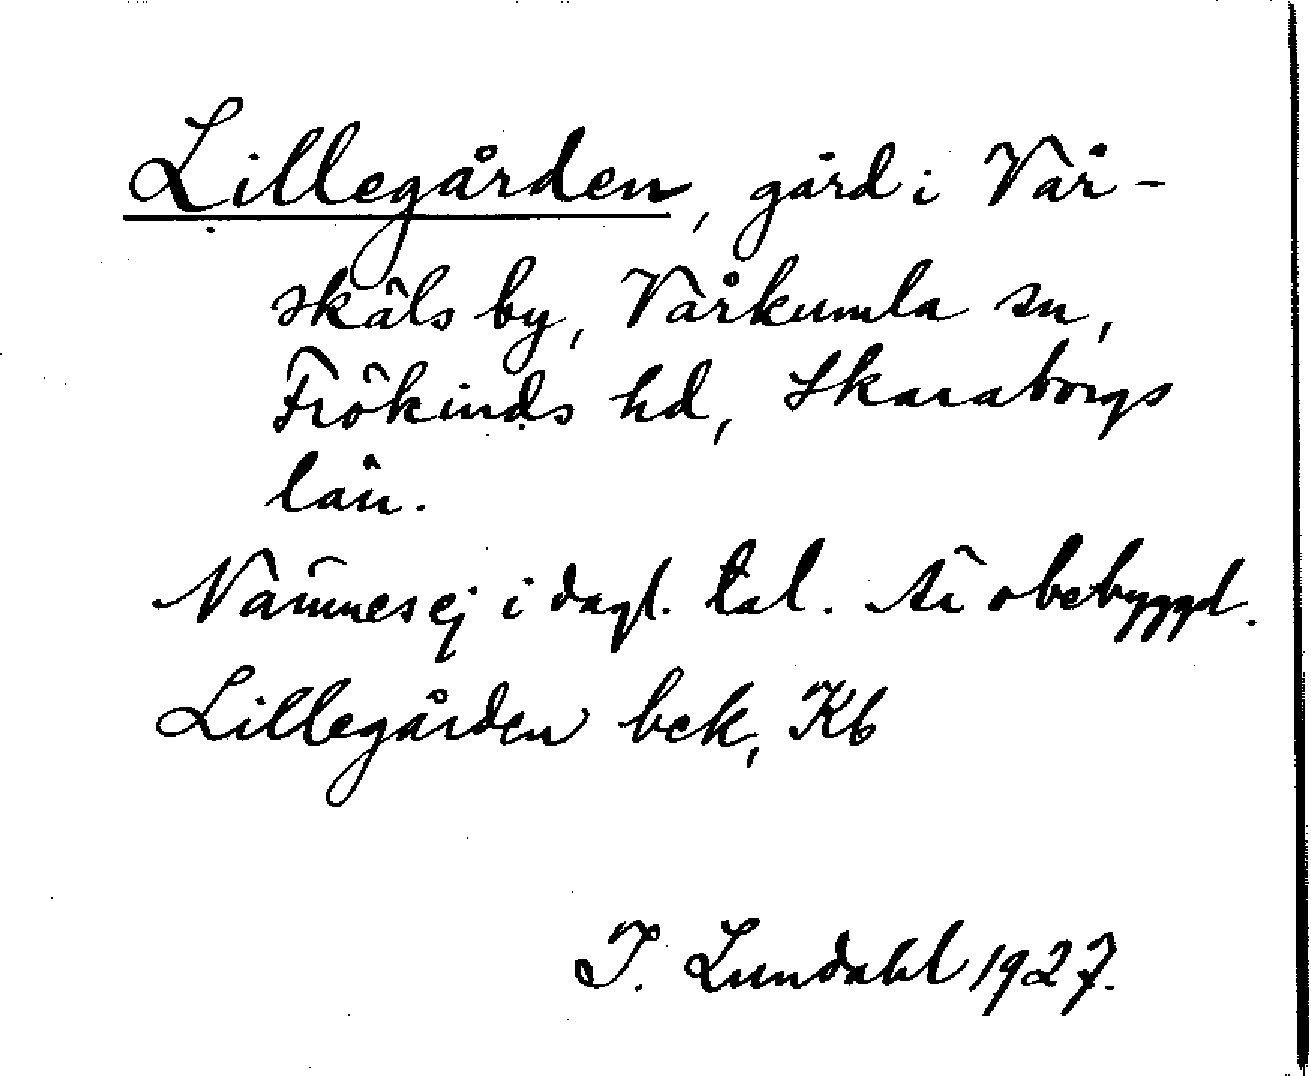 Lillegården, gård i Vår-
skäls by, Vårkumla sn,
Frökinds hd, Skaraborgs
län.
Nämnes ej i dagl. tal. Är obebyggd.
Lillegården bek, Kb
I. Lundahl 1927.